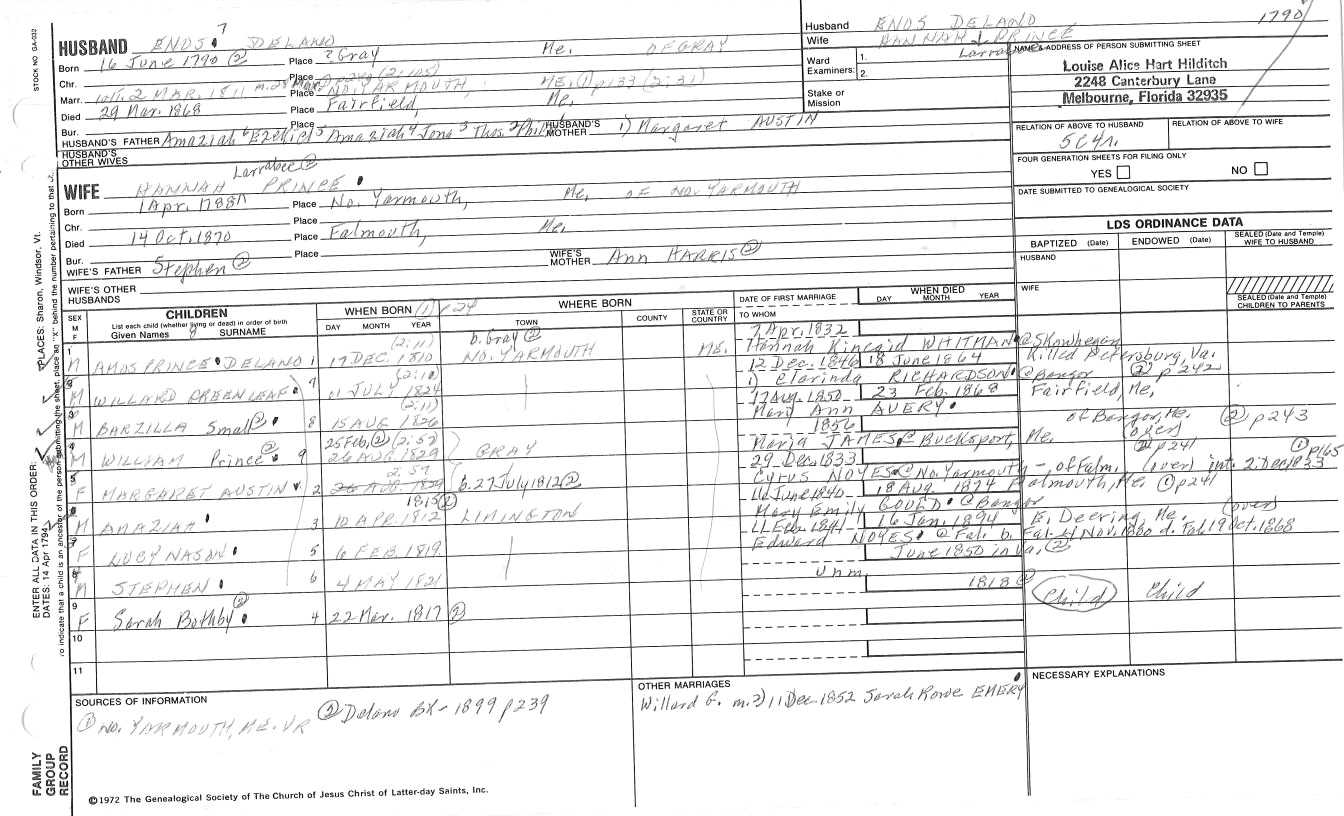 STOCK NO GA-033
HUSBAND ENOS 7 DELANO
Born 16 June 1790 ② Place ? Gray Me. OF GRAY
Chr. Place
Marr. 2 MAR. 1811 Place NO. YARMOUTH, ME. ① p133 (2:31)
Died 29 Mar. 1868 Place Fairfield, Me.
Bur. Place
HUSBAND'S FATHER Amaziah 6 Ezekiel 5 Amaziah 4 Jona 3 Thos 2 Phil HUSBAND'S MOTHER 1) Margaret AUSTIN
HUSBAND'S OTHER WIVES
Husband ENOS DELANO 1790
Wife HANNAH L. PRINCE
Larrabee
Ward Examiners: 1.
2.
Stake or Mission
NAME & ADDRESS OF PERSON SUBMITTING SHEET
Louise Alice Hart Hilditch
2248 Canterbury Lane
Melbourne, Florida 32935
RELATION OF ABOVE TO HUSBAND RELATION OF ABOVE TO WIFE
5C4r.
FOUR GENERATION SHEETS FOR FILING ONLY
YES NO
DATE SUBMITTED TO GENEALOGICAL SOCIETY
Larrabee ②
WIFE HANNAH PRINCE
Born 1 Apr. 1788 Place No. Yarmouth, Me. OF NO. YARMOUTH
Chr. Place
Died 14 Oct. 1870 Place Falmouth, Me.
Bur. Place
WIFE'S FATHER Stephen ② WIFE'S MOTHER Ann HARRIS ②
WIFE'S OTHER HUSBANDS
LDS ORDINANCE DATA
BAPTIZED (Date) ENDOWED (Date) SEALED (Date and Temple) WIFE TO HUSBAND
HUSBAND
WIFE
SEALED (Date and Temple) CHILDREN TO PARENTS
SEX M F
CHILDREN
List each child (whether living or dead) in order of birth
Given Names SURNAME
WHEN BORN (1) p24
DAY MONTH YEAR
WHERE BORN
TOWN COUNTY STATE OR COUNTRY
DATE OF FIRST MARRIAGE
TO WHOM
WHEN DIED
DAY MONTH YEAR
(2:11) b. Gray ② 7 Apr. 1832
M AMOS PRINCE DELANO 1 17 DEC. 1810 NO. YARMOUTH ME. Hannah Kincaid WHITMAN @ Skowhegan
(2:10) 12 Dec. 1846 18 June 1864 Killed Petersburg, Va.
M WILLARD GREENLEAF 7 01 JULY 1824 1) Clarinda RICHARDSON @ Bangor ② p242
(2:11) 17 Aug. 1850 23 Feb. 1868 Fairfield, Me.
M BARZILLA Small ② 8 15 AUG 1826 Mary Ann AVERY of Bangor, Me. ② p243
25 Feb. ② (2:57) 1856 (over)
M WILLIAM Prince ② 9 26 AUG 1829 GRAY Maria JAMES @ Bucksport, Me. ② p241
2:57 29 Dec. 1833 ① p165
F MARGARET AUSTIN 2 26 AUG. 1829 b. 27 July 1812 ② Cyrus NOYES @ No. Yarmouth - of Falm. (over) int. 2 Dec 1833
1815 ② 16 June 1840 18 Aug. 1874 Falmouth, Me. ① p241
M AMAZIAH 3 10 APR. 1812 LIMINGTON Mary Emily GOULD @ Bangor (over)
16 Jan. 1894 E. Deering Me.
F LUCY NASON 5 6 FEB. 1819 Edward NOYES @ Fal. b. Fal. 21 Nov. 1800 d. Fal. 19 Oct. 1868
June 1850 in Va. ②
M STEPHEN 6 4 MAY 1821 Unm
1818 ②
9 F Sarah Bothby ② 4 22 Mar. 1817 ② Child Child
10
11
SOURCES OF INFORMATION
① NO. YARMOUTH, ME. VR ② Delano BK - 1899 p239
OTHER MARRIAGES
Willard G. m. 2) 11 Dec. 1852 Sarah Rowe EMERY
NECESSARY EXPLANATIONS
FAMILY GROUP RECORD
ENTER ALL DATA IN THIS ORDER:
DATES: 14 Apr 1794
PLACES: Sharon, Windsor, Vt.
To indicate that a child is an ancestor of the person submitting the sheet, place an "X" behind the number pertaining to that
©1972 The Genealogical Society of The Church of Jesus Christ of Latter-day Saints, Inc.